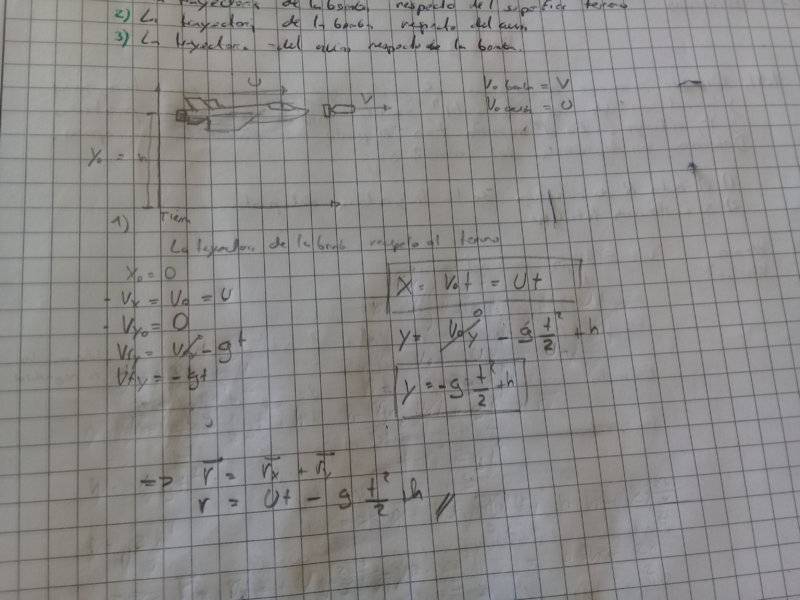 trayectoria de la bomba respecto del superficie terreno
2) La trayectoria de la bomba respecto del avion
3) La trayectoria del avion respecto de la bomba.
U
V
V₀ bomba = V
V₀ avion = U
Y₀ = h
1) Tierra
La trayectoria de la bomba respecto al terreno
X₀ = 0
X = V₀t = Ut
- Vx = V₀ = U
- Vy₀ = 0
Y = V₀y 0 - g t²/2 + h
- gt
= - gt
y = -g t²/2 + h
=> r⃗ = r⃗x + r⃗y
r = Ut - g t²/2 + h //